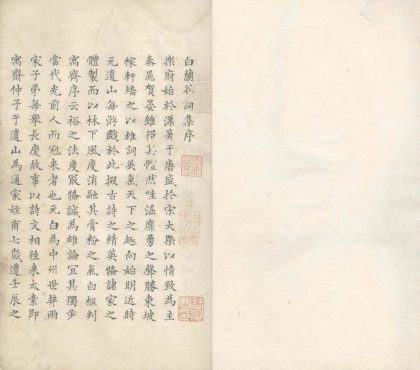 白蘭谷詞集序
樂府始於漢著于唐盛於宋大槩以情致為主
秦晁賀晏雖得其體然哇滛靡曼之聲勝東坡
稼軒矯之以雄詞英氣天下之趨向始明近時
元遺山每游戲於此掇古詩之精英備諸家之
體製而以林下風度消融其膏粉之氣白樞判
寓齋序云裕之法度最備誠為確論冝其獨步
當代光前人而冠來者也元白為中州世契兩
家子弟每舉長慶故事以詩文相往來太素即
寓齋仲子于遺山為通家姪甫七歲遭壬辰之